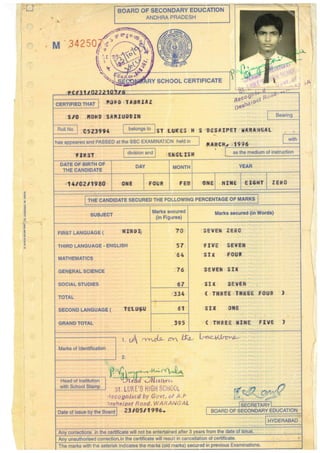 BOARD OF SECONDARY EDUCATION
ANDHRA PRADESH
M 342507
SECONDARY SCHOOL CERTIFICATE
CERTIFIED THAT MOHD TABRIAZ
S/O MOHD SAMIUDDIN Bearing
Roll No. 0523994 belongs to ST LUKES H S DESAIPET WARANGAL with
has appeared and PASSED at the SSC EXAMINATION held in MARCH, 1996
FIRST division and ENGLISH as the medium of instruction
DATE OF BIRTH OF THE CANDIDATE DAY MONTH YEAR
14/02/1980 ONE FOUR FEB ONE NINE EIGHT ZERO
THE CANDIDATE SECURED THE FOLLOWING PERCENTAGE OF MARKS
SUBJECT Marks secured (in Figures) Marks secured (in Words)
FIRST LANGUAGE ( HINDI 70 SEVEN ZERO
THIRD LANGUAGE - ENGLISH 57 FIVE SEVEN
MATHEMATICS 64 SIX FOUR
GENERAL SCIENCE 76 SEVEN SIX
SOCIAL STUDIES 67 SIX SEVEN
TOTAL 334 ( THREE THREE FOUR )
SECOND LANGUAGE ( TELUGU 61 SIX ONE
GRAND TOTAL 395 ( THREE NINE FIVE )
Marks of Identification
1. A mole on the backbone
2.
Head of Institution with School Stamp
Head Master
ST. LUKE'S HIGH SCHOOL
Recognised by Govt. of A.P
Deshaipet Road, WARANGAL
SECRETARY
Date of issue by the Board 23/05/1996. BOARD OF SECONDARY EDUCATION
HYDERABAD
Any corrections in the certificate will not be entertained after 3 years from the date of issue.
Any unauthorised correction in the certificate will result in cancellation of certificate.
The marks with the asterisk indicates the marks (old marks) secured in previous Examinations.